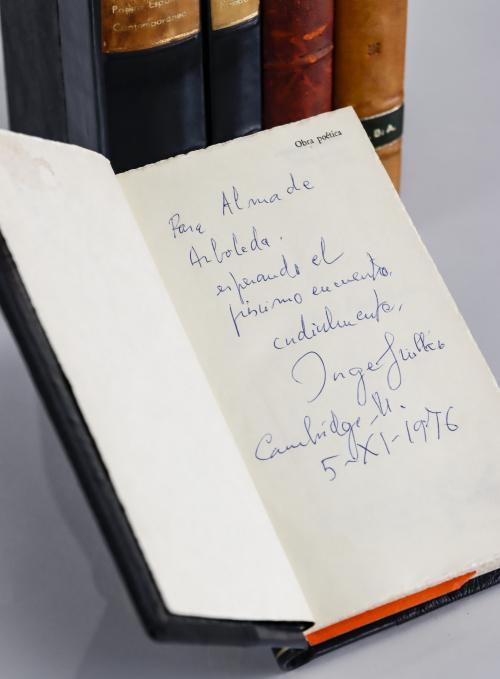 Poesía Española
Contemporánea
B. A.
Obra poética
Para Alma de
Arboleda.
esperando el
próximo encuentro,
cordialmente,
Jorge Guillén
Cambridge, M.
5-XI-1976